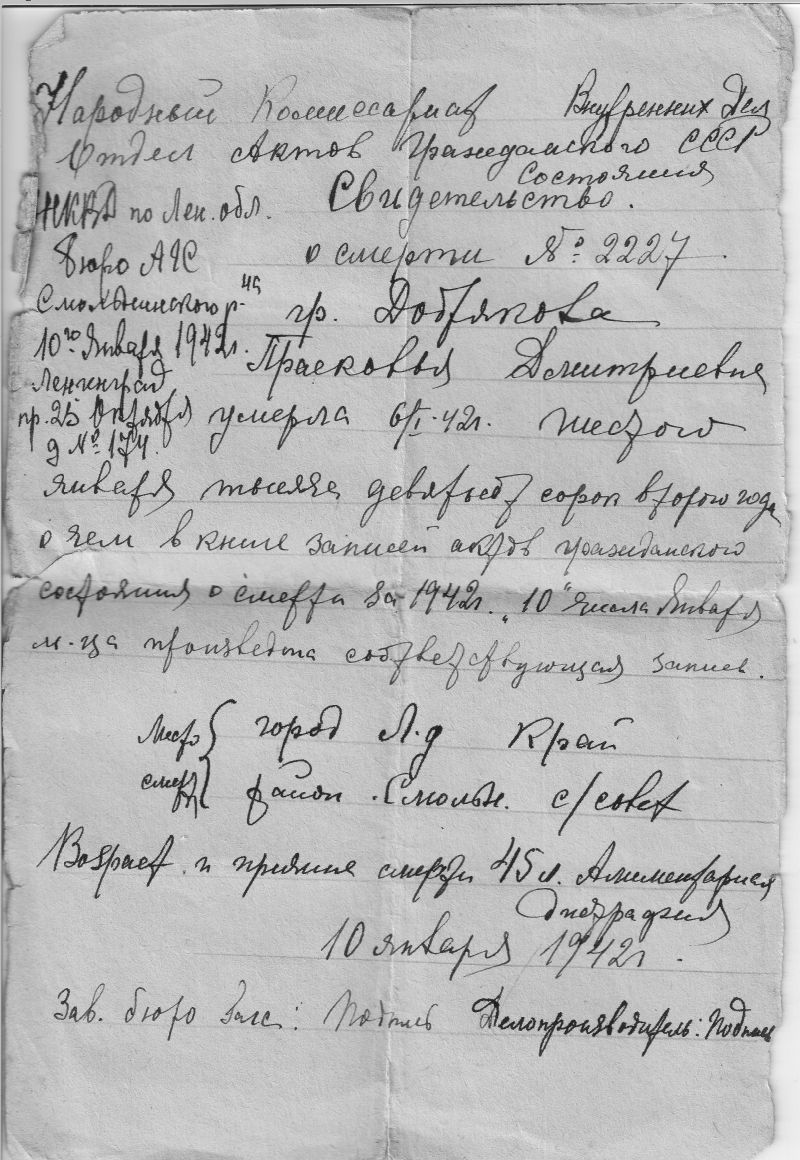 Народный Комиссариат Внутренних Дел
Отдел Актов Гражданского СССР
Состояния
Свидетельство.
о смерти № 2227.
НКВД по Лен. обл.
Бюро АГС
Смольнинского р-на
10го Января 1942г.
Ленинград
пр. 25 Октября
д № 174.
гр. Добрякова
Прасковья Дмитриевна
умерла 6/I-42г. шестого
января тысяча девятьсот сорок второго года
о чем в книге записей актов гражданского
состояния о смерти за 1942г. "10" числа Января
м-ца произведена соответствующая запись.
Место смерт { город Л-д Край
район Смольн. с/совет
Возраст и причина смерти 45 л. Алиментарная
дистрафия
10 января 1942г.
Зав. бюро Загс: Подпись Делопроизводитель: Подпись